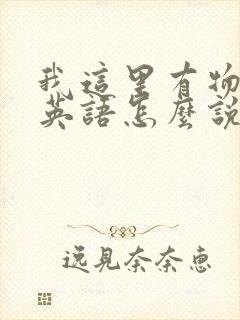 我這里有物
英語怎麼說
逸見奈奈惠